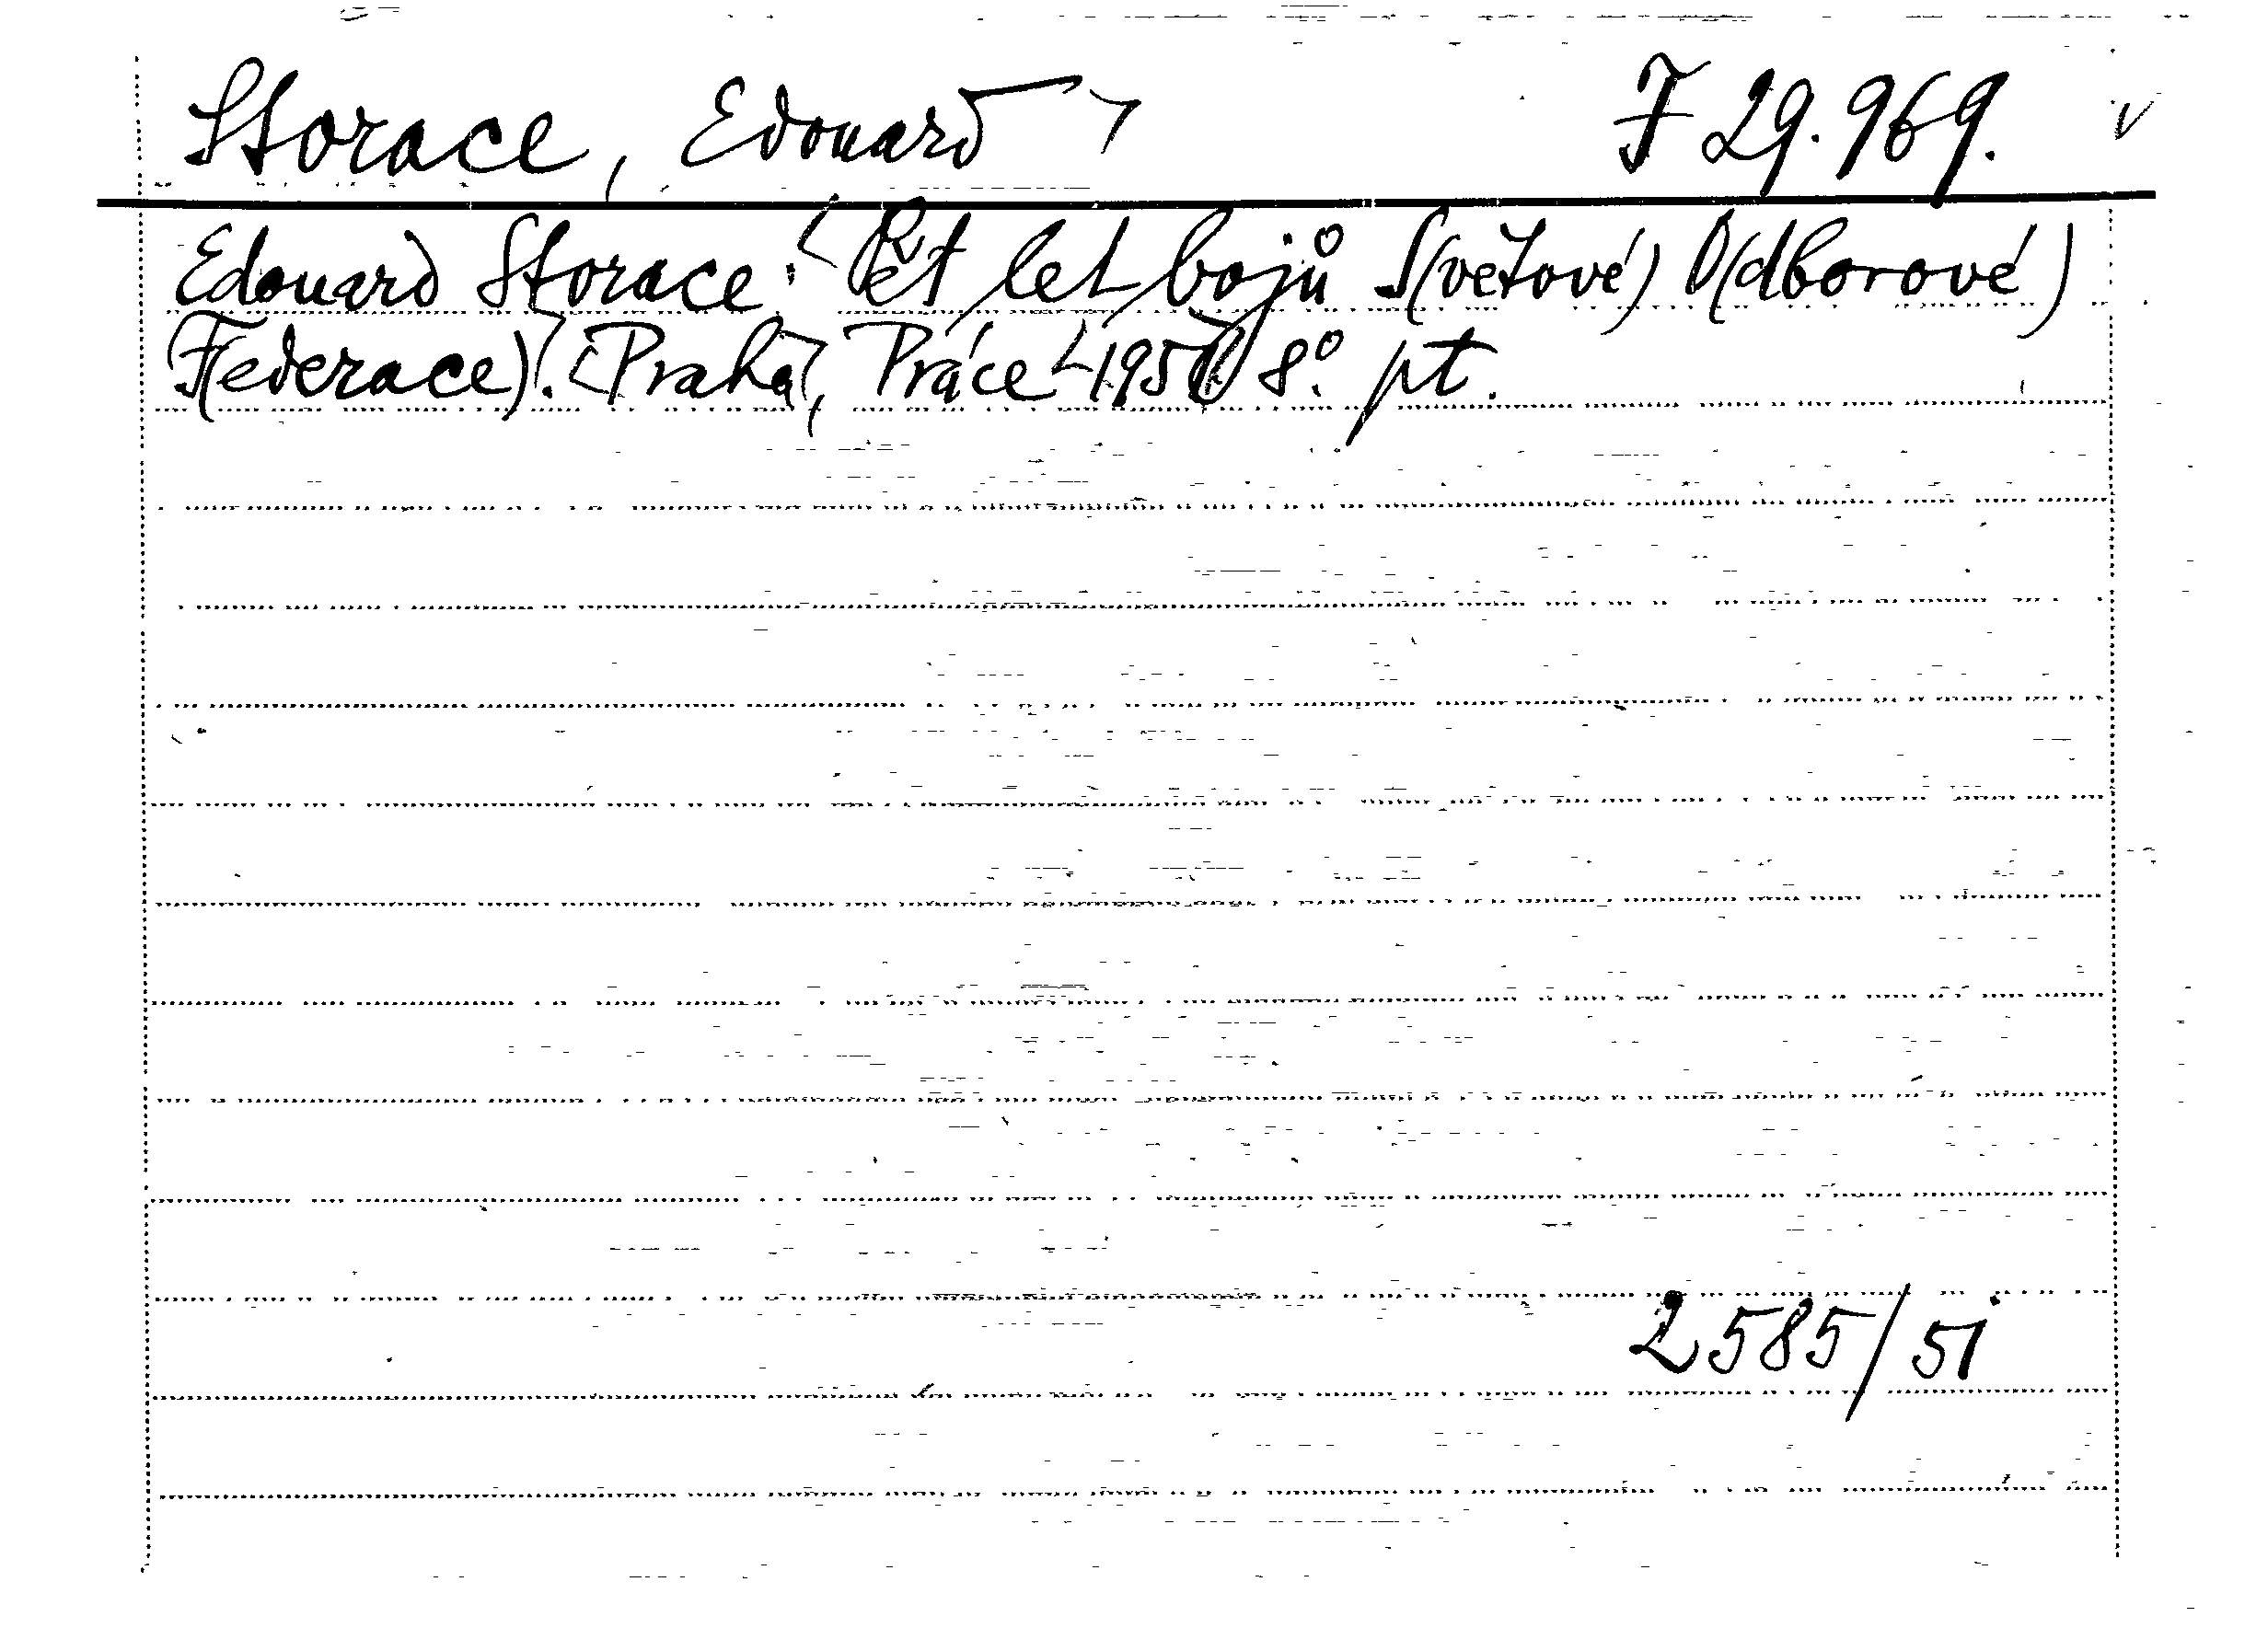 Storace, Edouard F 29.969. v
Edouard Storace: Pět let bojů S(větové) O(dborové)
F(ederace). Praha, Práce 1950 8° pt.
2585/51